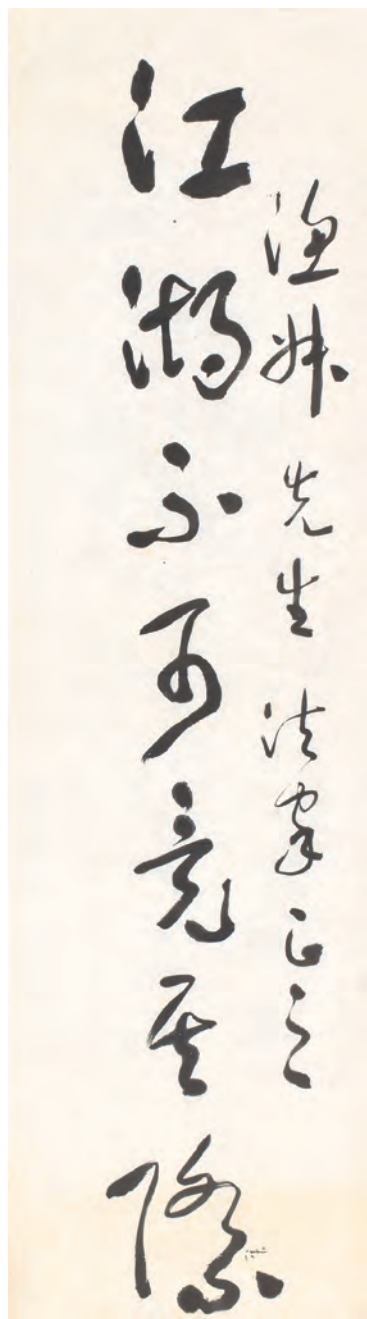 漁叔先生法家正之
江湖不可竟其際